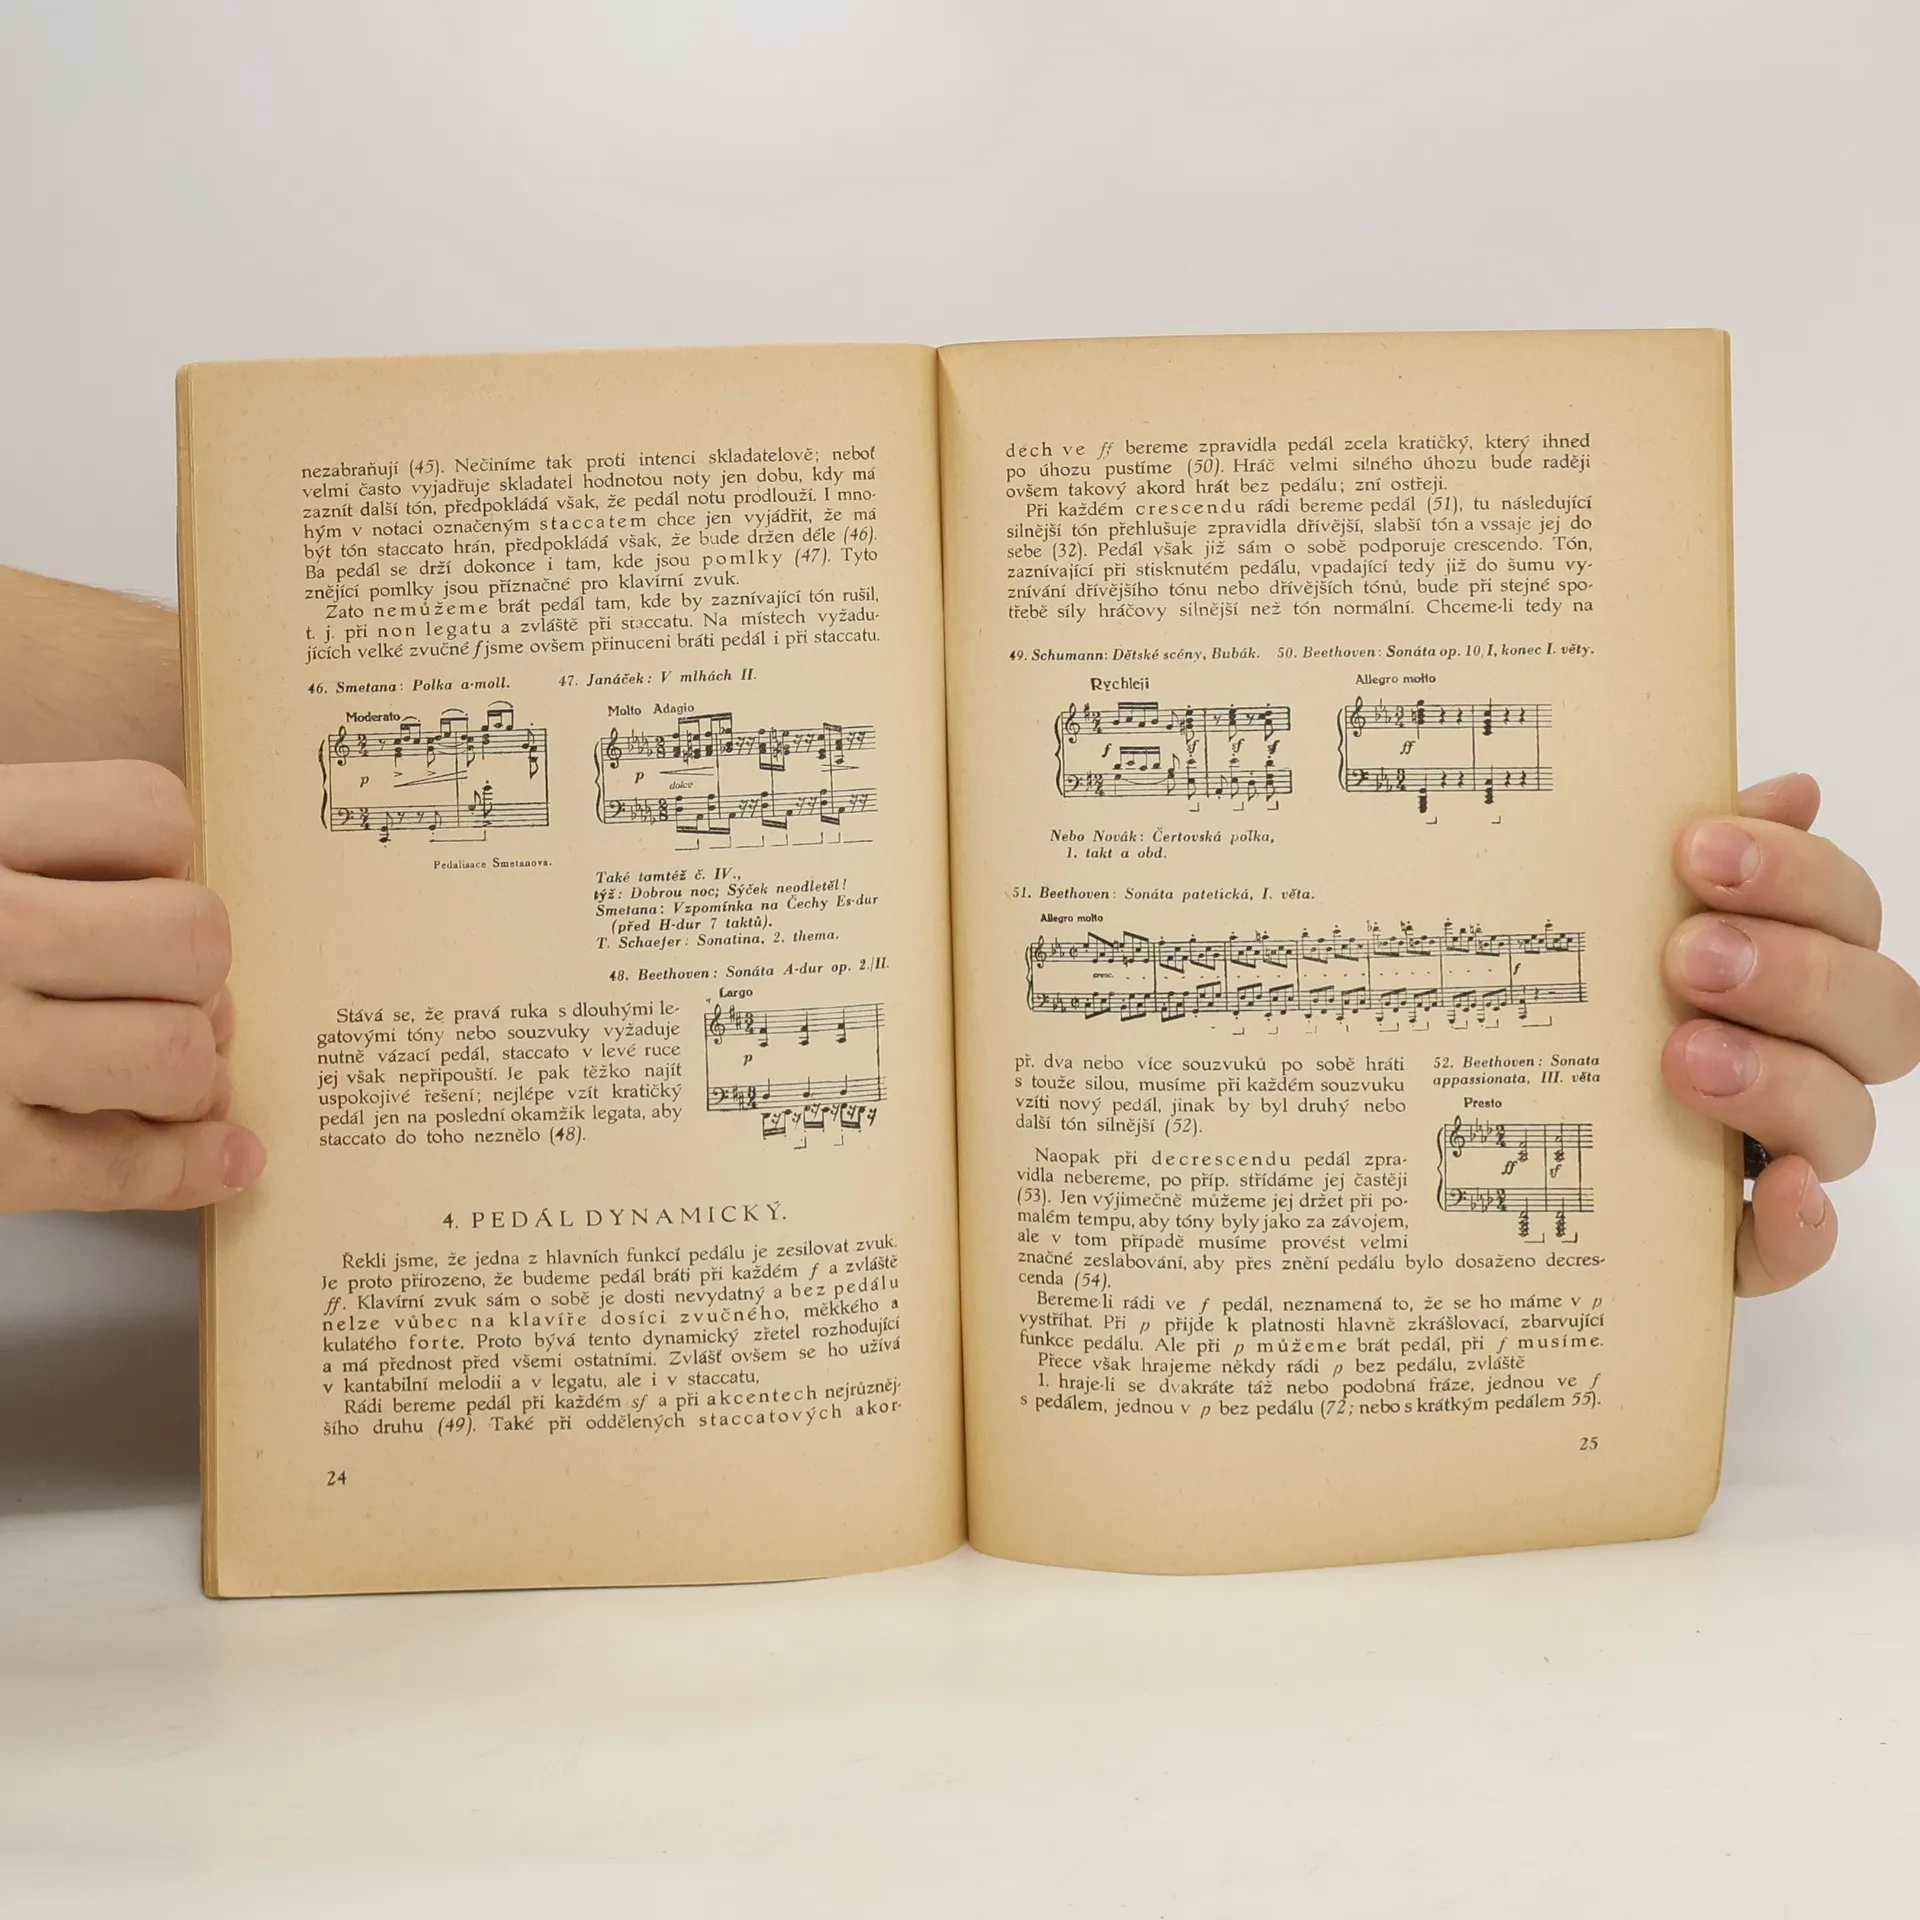 nezabraňují (45). Nečiníme tak proti intenci skladatelově; neboť
velmi často vyjadřuje skladatel hodnotou noty jen dobu, kdy má
zaznít další tón, předpokládá však, že pedál notu prodlouží. I mno-
hým v notaci označeným staccatem chce jen vyjádřit, že má
být tón staccato hrán, předpokládá však, že bude držen déle (46).
Ba pedál se drží dokonce i tam, kde jsou pomlky (47). Tyto
znějící pomlky jsou příznačné pro klavírní zvuk.
Zato nemůžeme brát pedál tam, kde by zaznívající tón rušil,
t. j. při non legatu a zvláště při staccatu. Na místech vyžadu-
jících velké zvučné f jsme ovšem přinuceni bráti pedál i při staccatu.
46. Smetana: Polka a-moll.
47. Janáček: V mlhách II.
Moderato
p
Molto Adagio
p
dolce
Pedalisace Smetanova.
Také tamtéž č. IV.,
týž: Dobrou noc; Sýček neodletěl!
Smetana: Vzpomínka na Čechy Es-dur
(před H-dur 7 taktů).
T. Schaefer: Sonatina, 2. thema.
48. Beethoven: Sonáta A-dur op. 2./II.
Largo
p
Stává se, že pravá ruka s dlouhými le-
gatovými tóny nebo souzvuky vyžaduje
nutně vázací pedál, staccato v levé ruce
jej však nepřipouští. Je pak těžko najít
uspokojivé řešení; nejlépe vzít kratičký
pedál jen na poslední okamžik legata, aby
staccato do toho neznělo (48).
4. PEDÁL DYNAMICKÝ.
Řekli jsme, že jedna z hlavních funkcí pedálu je zesilovat zvuk.
Je proto přirozeno, že budeme pedál bráti při každém f a zvláště
ff. Klavírní zvuk sám o sobě je dosti nevydatný a bez pedálu
nelze vůbec na klavíře dosíci zvučného, měkkého a
kulatého forte. Proto bývá tento dynamický zřetel rozhodující
a má přednost před všemi ostatními. Zvlášť ovšem se ho užívá
v kantabilní melodii a v legatu, ale i v staccatu,
Rádi bereme pedál při každém sf a při akcentech nejrůzněj-
šího druhu (49). Také při oddělených staccatových akor-
24
dech ve ff bereme zpravidla pedál zcela kratičký, který ihned
po úhozu pustíme (50). Hráč velmi silného úhozu bude raději
ovšem takový akord hrát bez pedálu; zní ostřeji.
Při každém crescendu rádi bereme pedál (51), tu následující
silnější tón přehlušuje zpravidla dřívější, slabší tón a vssaje jej do
sebe (32). Pedál však již sám o sobě podporuje crescendo. Tón,
zaznívající při stisknutém pedálu, vpadající tedy již do šumu vy-
znívání dřívějšího tónu nebo dřívějších tónů, bude při stejné spo-
třebě síly hráčovy silnější než tón normální. Chceme-li tedy na
49. Schumann: Dětské scény, Bubák.
50. Beethoven: Sonáta op. 10/I, konec I. věty.
Rychleji
f sf sf sf
Allegro molto
ff
Nebo Novák: Čertovská polka,
1. takt a obd.
51. Beethoven: Sonáta patetická, I. věta.
Allegro molto
cresc.
f
př. dva nebo více souzvuků po sobě hráti
s touže silou, musíme při každém souzvuku
vzíti nový pedál, jinak by byl druhý nebo
další tón silnější (52).
52. Beethoven: Sonata
appassionata, III. věta
Presto
ff sf
Naopak při decrescendu pedál zpra-
vidla nebereme, po příp. střídáme jej častěji
(53). Jen výjimečně můžeme jej držet při po-
malém tempu, aby tóny byly jako za závojem,
ale v tom případě musíme provést velmi
značné zeslabování, aby přes znění pedálu bylo dosaženo decres-
cenda (54).
Bereme-li rádi ve f pedál, neznamená to, že se ho máme v p
vystříhat. Při p přijde k platnosti hlavně zkrášlovací, zbarvující
funkce pedálu. Ale při p můžeme brát pedál, při f musíme.
Přece však hrajeme někdy rádi p bez pedálu, zvláště
1. hraje-li se dvakráte táž nebo podobná fráze, jednou ve f
s pedálem, jednou v p bez pedálu (72; nebo s krátkým pedálem 55).
25